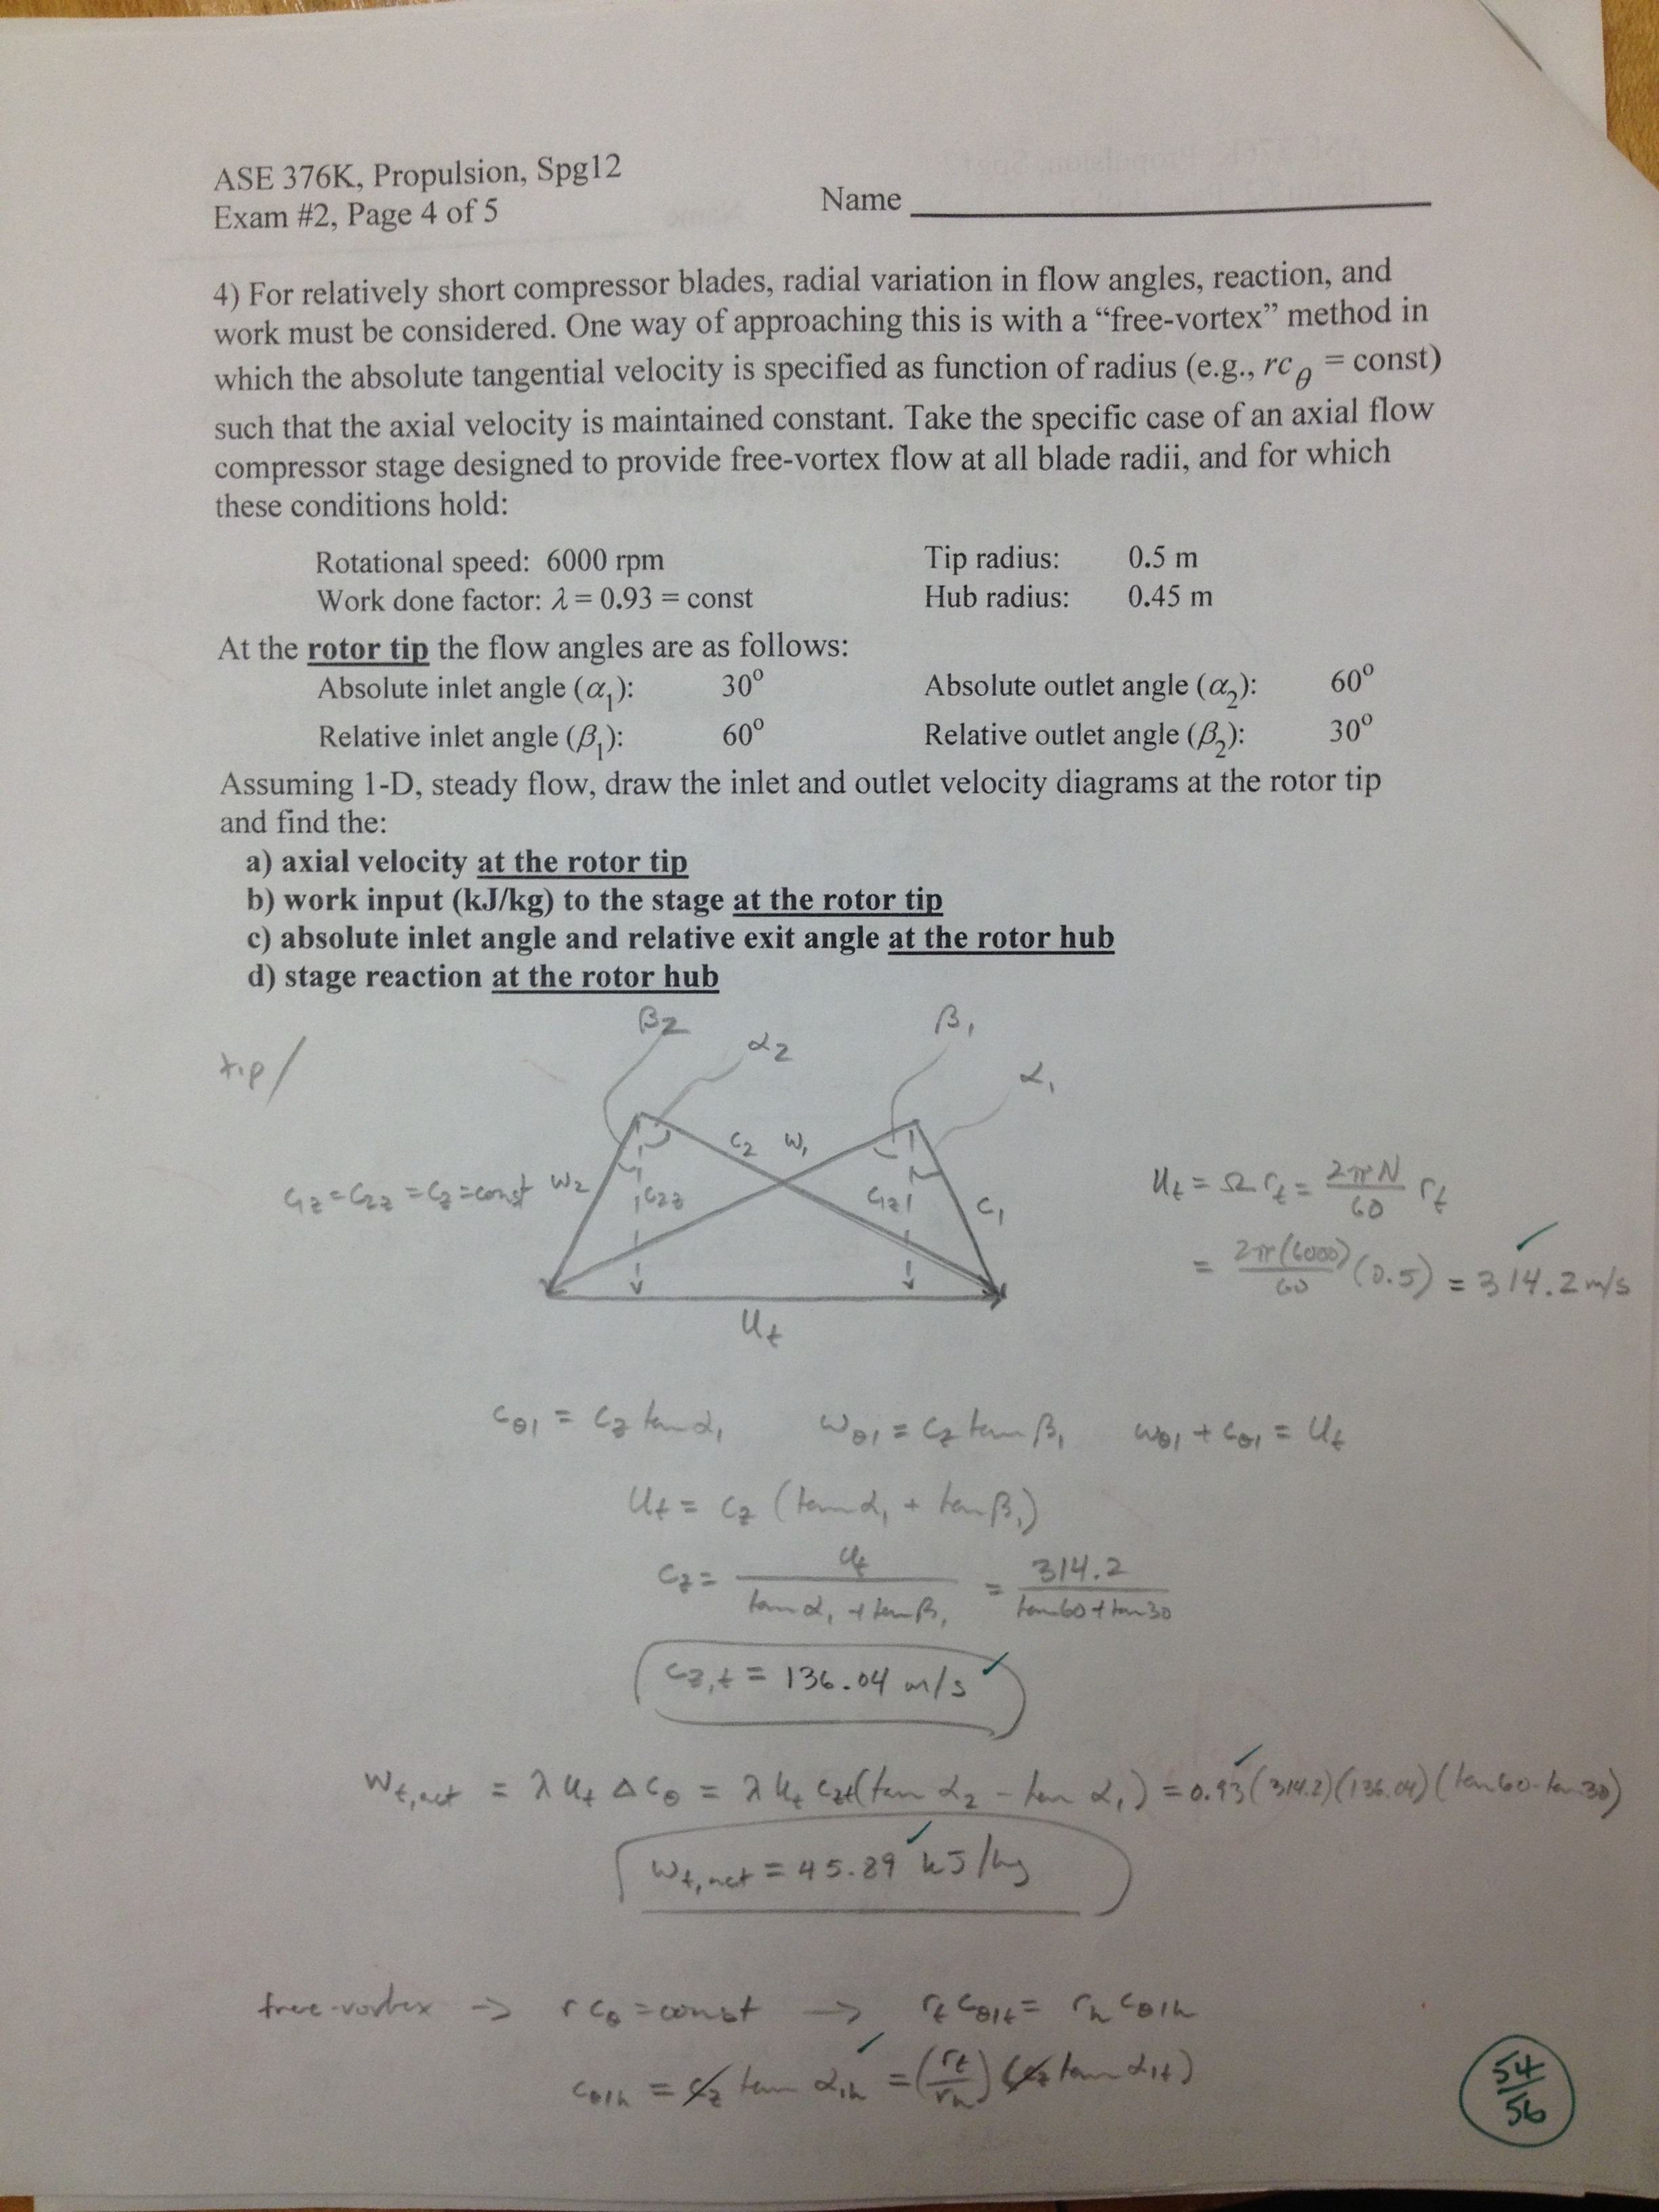 ASE 376K, Propulsion, Spg12
Exam #2, Page 4 of 5
Name
4) For relatively short compressor blades, radial variation in flow angles, reaction, and
work must be considered. One way of approaching this is with a “free-vortex” method in
which the absolute tangential velocity is specified as function of radius (e.g., rc_θ = const)
such that the axial velocity is maintained constant. Take the specific case of an axial flow
compressor stage designed to provide free-vortex flow at all blade radii, and for which
these conditions hold:
Rotational speed: 6000 rpm Tip radius: 0.5 m
Work done factor: λ = 0.93 = const Hub radius: 0.45 m
At the rotor tip the flow angles are as follows:
Absolute inlet angle (α₁): 30° Absolute outlet angle (α₂): 60°
Relative inlet angle (β₁): 60° Relative outlet angle (β₂): 30°
Assuming 1-D, steady flow, draw the inlet and outlet velocity diagrams at the rotor tip
and find the:
a) axial velocity at the rotor tip
b) work input (kJ/kg) to the stage at the rotor tip
c) absolute inlet angle and relative exit angle at the rotor hub
d) stage reaction at the rotor hub
tip/
β₂ α₂ β₁ α₁
C₂ W₁
C₁z = C₂z = Cz = const W₂ C₂z C₁z C₁
U_t
U_t = Ω r_t = 2πN/60 r_t
= 2π(6000)/60 (0.5) = 314.2 m/s ✓
C_θ1 = Cz tan α₁ W_θ1 = Cz tan β₁ W_θ1 + C_θ1 = U_t
U_t = Cz (tan α₁ + tan β₁)
Cz = U_t/(tan α₁ + tan β₁) = 314.2/(tan 60 + tan 30)
Cz,t = 136.04 m/s ✓
W_t,act = λ U_t Δ C_θ = λ U_t Czt (tan α₂ - tan α₁) = 0.93 (314.2)(136.04)(tan 60 - tan 30) ✓
W_t,act = 45.89 kJ/kg ✓
free-vortex → r C_θ = const → r_t C_θ1t = r_h C_θ1h
C_θ1h = Cz tan α₁h = (r_t/r_h)(Cz tan α₁t) ✓
54/56